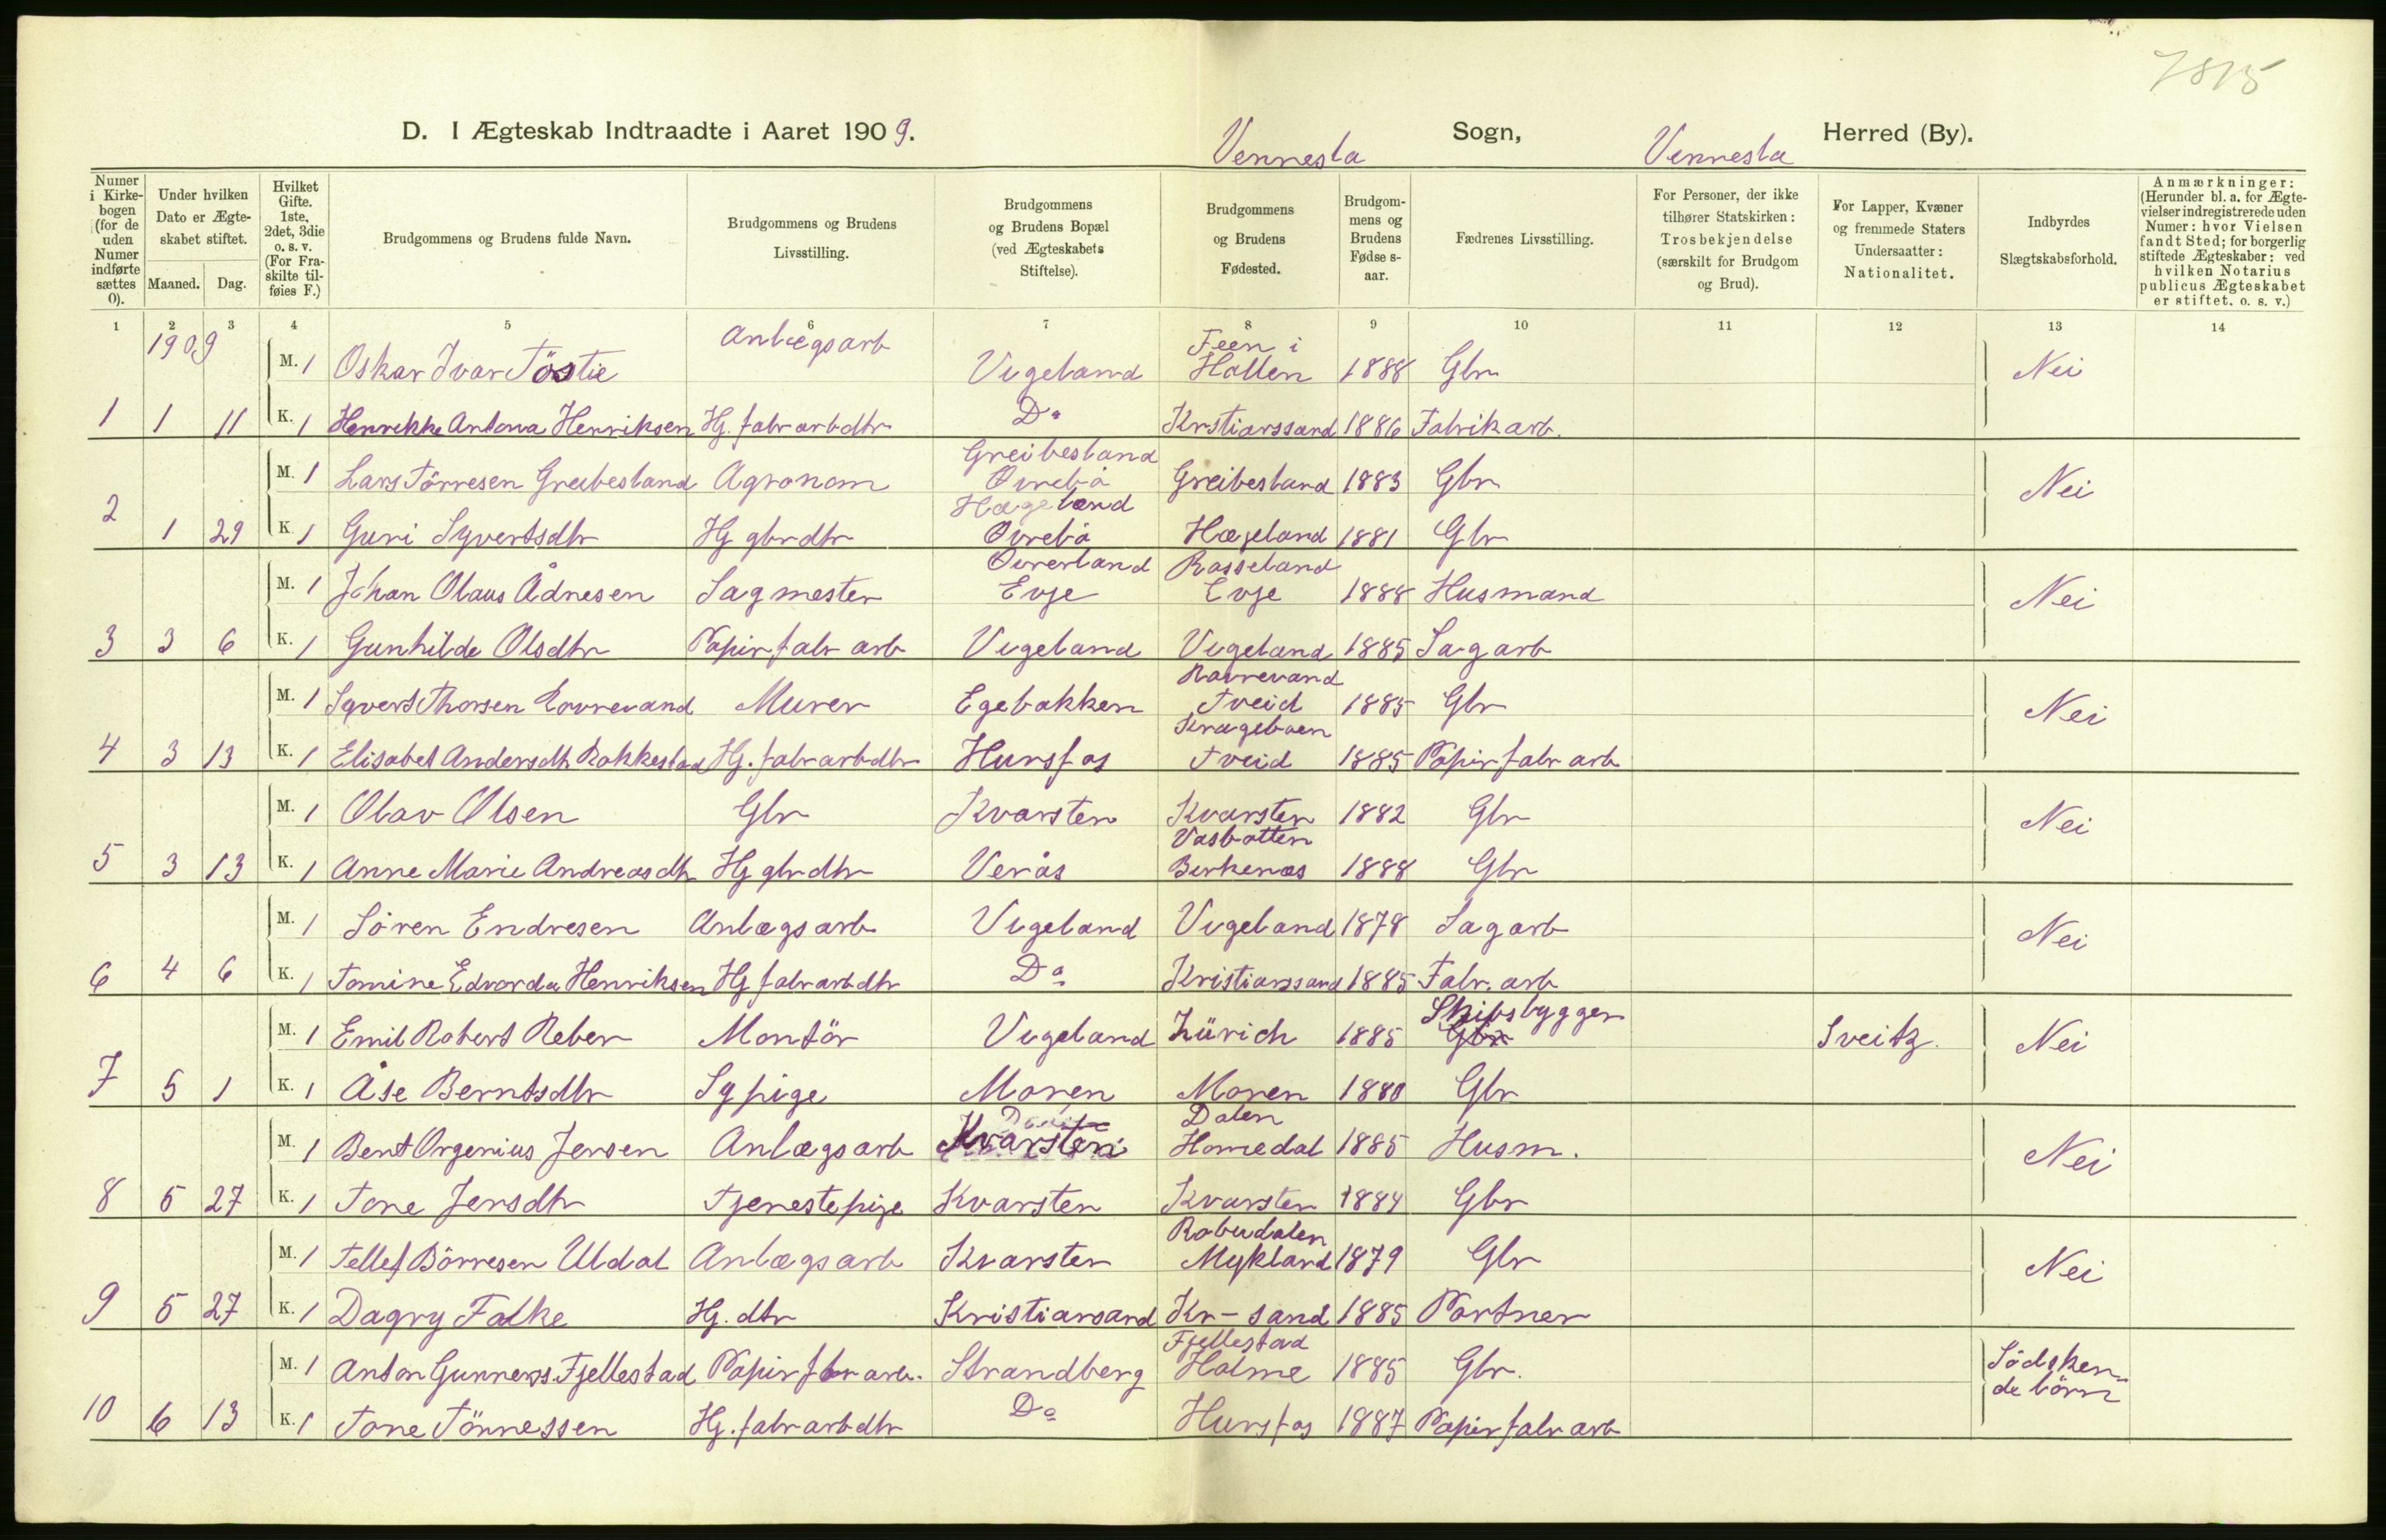 7815
D. I Ægteskab Indtraadte i Aaret 1909. Vennesla Sogn, Vennesla Herred (By).
Numer i Kirkebogen (for de uden Numer indførte sættes 0).
Under hvilken Dato er Ægteskabet stiftet.
Maaned. Dag.
Hvilket Gifte. 1ste, 2det, 3die o. s. v. (For Fraskilte tilføies F.)
Brudgommens og Brudens fulde Navn.
Brudgommens og Brudens Livsstilling.
Brudgommens og Brudens Bopæl (ved Ægteskabets Stiftelse).
Brudgommens og Brudens Fødested.
Brudgommens og Brudens Fødselsaar.
Fædrenes Livsstilling.
For Personer, der ikke tilhører Statskirken: Trosbekjendelse (særskilt for Brudgom og Brud).
For Lapper, Kvæner og fremmede Staters Undersaatter: Nationalitet.
Indbyrdes Slægtskabsforhold.
Anmærkninger: (Herunder bl. a. for Ægtevielser indregistrerede uden Numer: hvor Vielsen fandt Sted; for borgerlig stiftede Ægteskaber: ved hvilken Notarius publicus Ægteskabet er stiftet. o. s. v.)
1 2 3 4 5 6 7 8 9 10 11 12 13 14
1909
M. 1 Oskar Ivar Töstie Anlægsarb Vigeland Feen i Hollen 1888 Gbr Nei
1 1 11 K. 1 Henrikke Antona Henriksen Hj. fabrarbdtr Do Krstianssand 1886 Fabrikarb.
M. 1 Lars Törresen Greibesland Agronom Greibesland Övrebö Greibesland 1883 Gbr Nei
2 1 29 K 1 Guri Syvertsdtr Hj gbrdtr Hægeland Övrebö Hægeland 1881 Gbr
M. 1 Johan Olaus Ådnesen Sagmester Evje Rosseland Evje 1888 Husmand Nei
3 3 6 K. 1 Gunhilde Olsdtr Papirfabr arb Vigeland Vigeland 1885 Sagarb
M. 1 Syvert Thorsen Murer Egebakken Tveid 1885 Gbr Nei
4 3 13 K. 1 Elisabet Andersdtr Rokkestad Hj. fabrarbdtr Hunsfos Krageboen Tveid 1885 Papirfabr arb
M. 1 Olav Olsen Gbr Kvarsten Kvarsten 1882 Gbr Nei
5 3 13 K. 1 Anne Marie Andreasdtr Hj gbrdtr Verås Vasbotten Birkenæs 1888 Gbr
M. 1 Sören Endresen Anlægsarb Vigeland Vigeland 1878 Sagarb Nei
6 4 6 K. 1 Tomine Edvarda Henriksen Hj fabrarbdtr Do Kristianssand 1885 Fabr. arb
M. 1 Emil Robert Reber Montör Vigeland Zürich 1885 Skibsbygger Gbr Sveitz. Nei
7 5 1 K. 1 Åse Berntsdtr Sypige Moren Moren 1880 Gbr
M. 1 Bent Orgenius Jensen Anlægsarb Kvarsten Dalen Homedal 1885 Husm. Nei
8 5 27 K. 1 Tone Jensdtr Tjenestepige Kvarsten Kvarsten 1884 Gbr
M. 1 Tellef Börresen Uldal Anlægsarb Kvarsten Robudalen Mykland 1879 Gbr Nei
9 5 27 K. 1 Dagny Falke Hj. dtr Kristiansand Kr-sand 1885 Portner
M. 1 Anton Gunners. Fjellestad Papirfbr arb. Strandberg Fjellestad Holme 1885 Gbr. Södsken-
de börn
10 6 13 K. 1 Tone Tönnessen Hj. fabrarbdtr Do Hunsfos 1887 Papirfabr arb